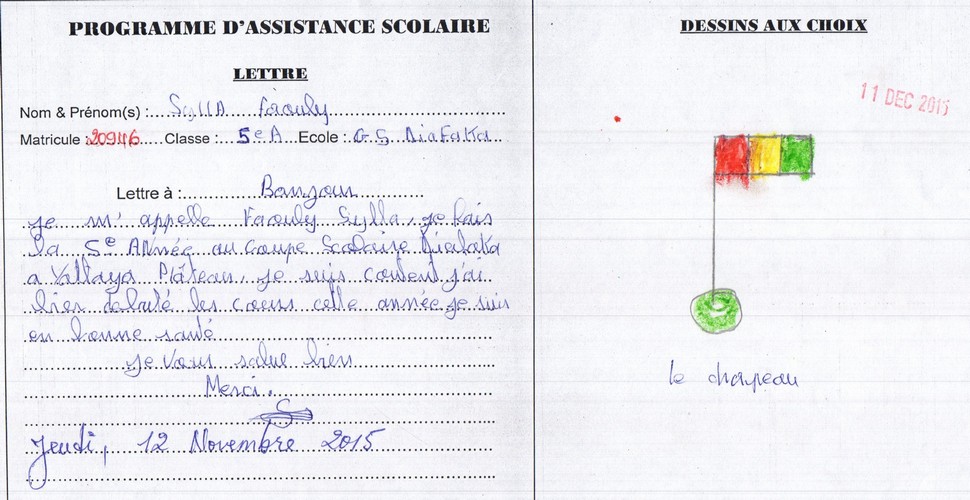 PROGRAMME D'ASSISTANCE SCOLAIRE
LETTRE
Nom & Prénom(s) : Sylla Faouly
Matricule : 20946 Classe : 5e A Ecole : G S Diafaka
Lettre à : Bonjour
je m'appelle Faouly Sylla, je fais
la 5e Année au Goupe Scolaire Diafaka
a Yattaya Plâteau, je suis content j'ai
bien debuté les cours cette année je suis
en bonne santé
je vous salue bien
Merci..
Jeudi, 12 Novembre 2015
DESSINS AUX CHOIX
11 DEC 2015
le drapeau